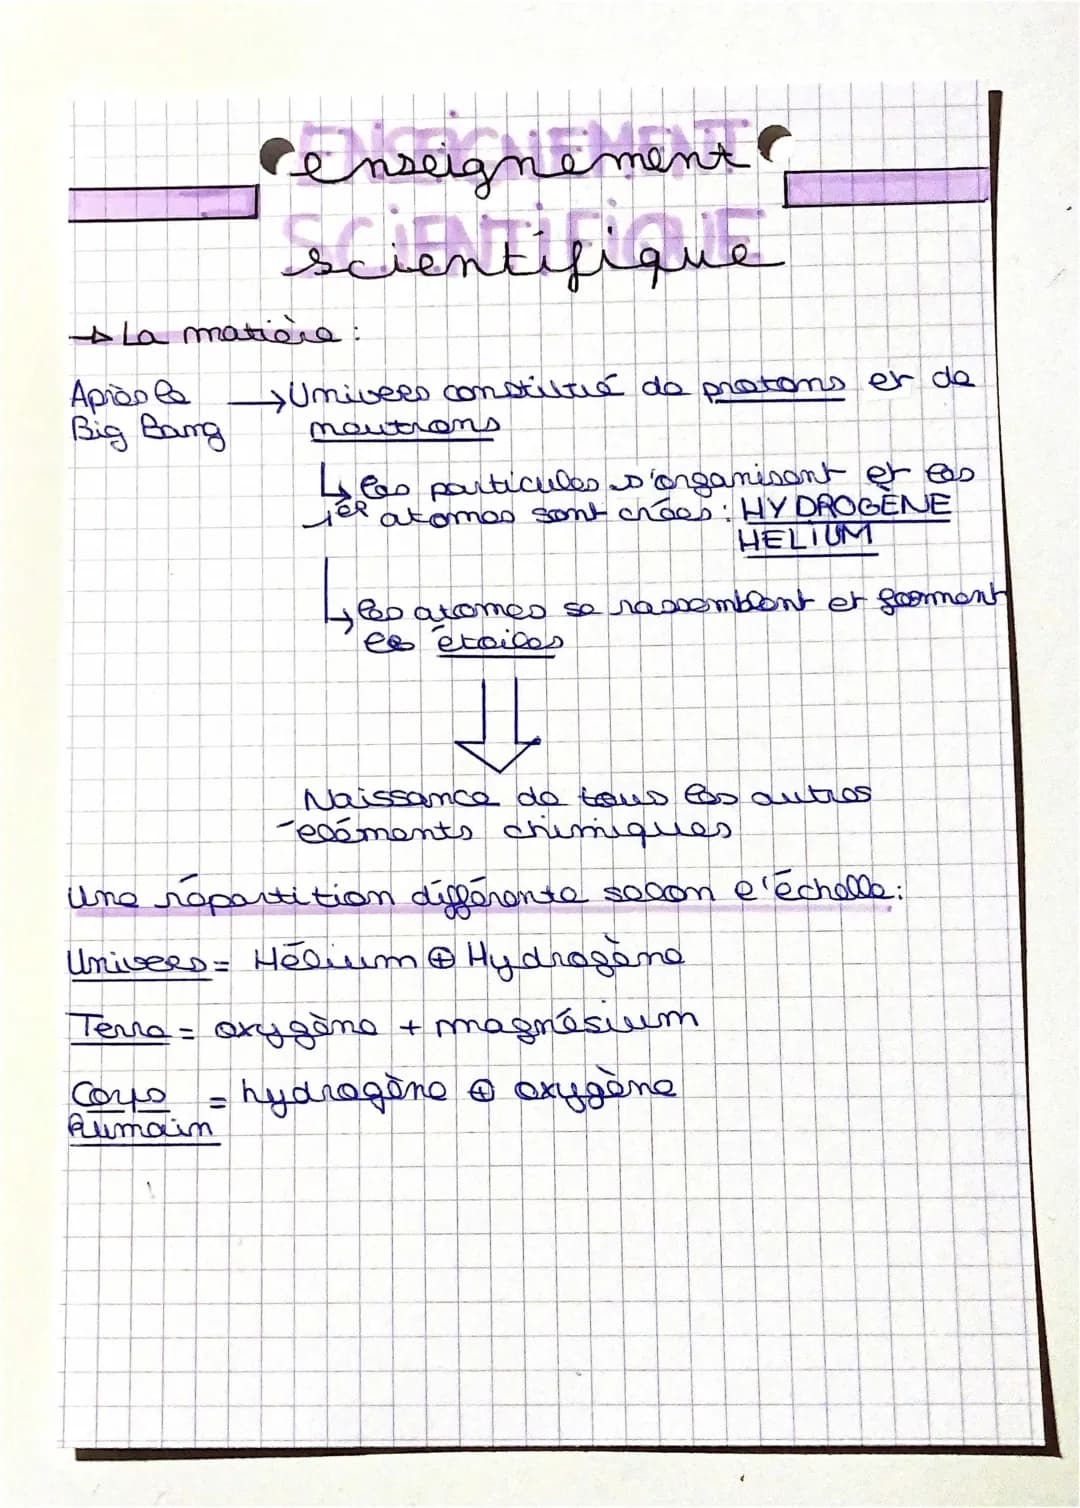 ENSEIGNEMENT
enseignement
SCIENTIFIQUE
scientifique
→ La matière :
Après le → Univers constitué de protons et de
Big Bang neutrons
↳ les particules s'organisent et les
1er atomes sont créés : HYDROGÈNE
HELIUM
↳ les atomes se rassemblent et forment
les étoiles
⇓
Naissance de tous les autres
eléments chimiques
Une répartition différente selon l'échelle :
Univers = Hélium ⊕ Hydrogène
Terre = oxygène + magnésium
Corps = hydrogène ⊕ oxygène
humain